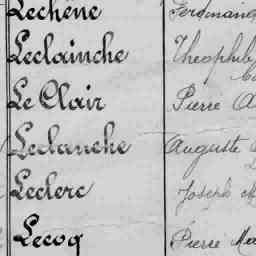 Lechêne Ferdinand
Leclainche Théophile
Le Clair Pierre
Leclanche Auguste
Leclerc Joseph
Lecoq Pierre